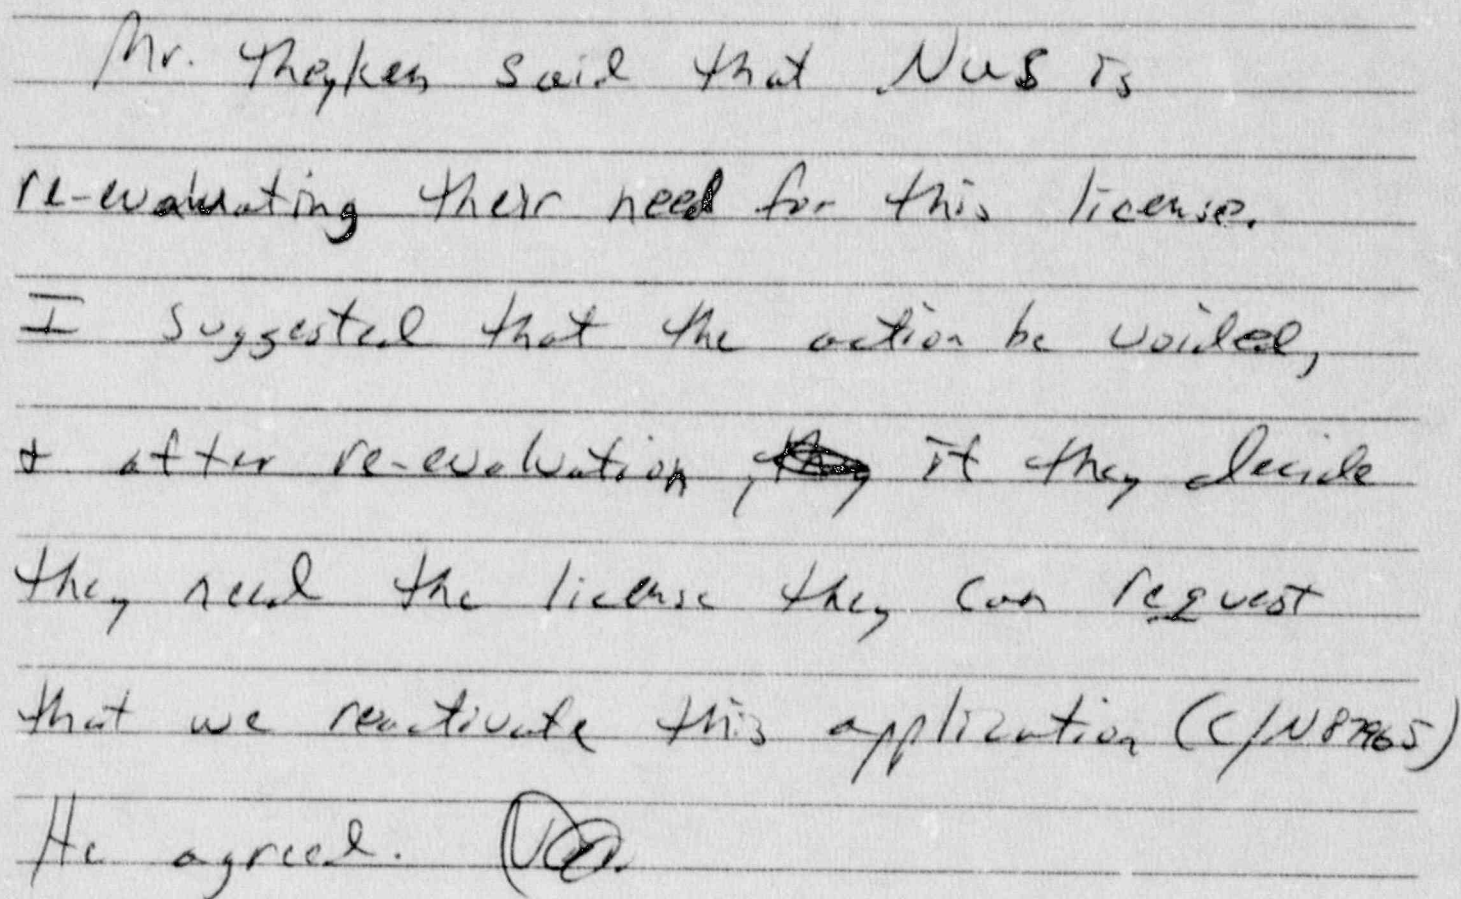 Mr. Theyken said that NUS is
re-evaluating their need for this license.
I suggested that the action be voided,
+ after re-evaluation, if they decide
they need the license they can request
that we reactivate this application (C/N 87965)
He agreed.